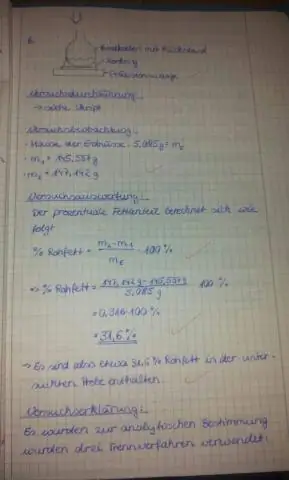 6.
Rundkolben mit Rückstand
Korkring
Präzisionswaage
Versuchsdurchführung:
→ siehe Skript
Versuchsbeobachtung:
· Masse der Erdnüsse: 5,085g = mE
· m1 = 145,537g
· m2 = 147,142g
Versuchsauswertung:
Der prozentuale Fettanteil berechnet sich wie
folgt
% Rohfett = m2-m1 / mE · 100%
⇒ % Rohfett = 147,142g - 145,537g / 5,085g · 100%
= 0,316·100%
= 31,6%
→ Es sind also etwa 31,6% Rohfett in der unter-
suchten Probe enthalten.
Versuchserklärung:
Es wurden zur analytischen Bestimmung
wurden drei Trennverfahren verwendet: